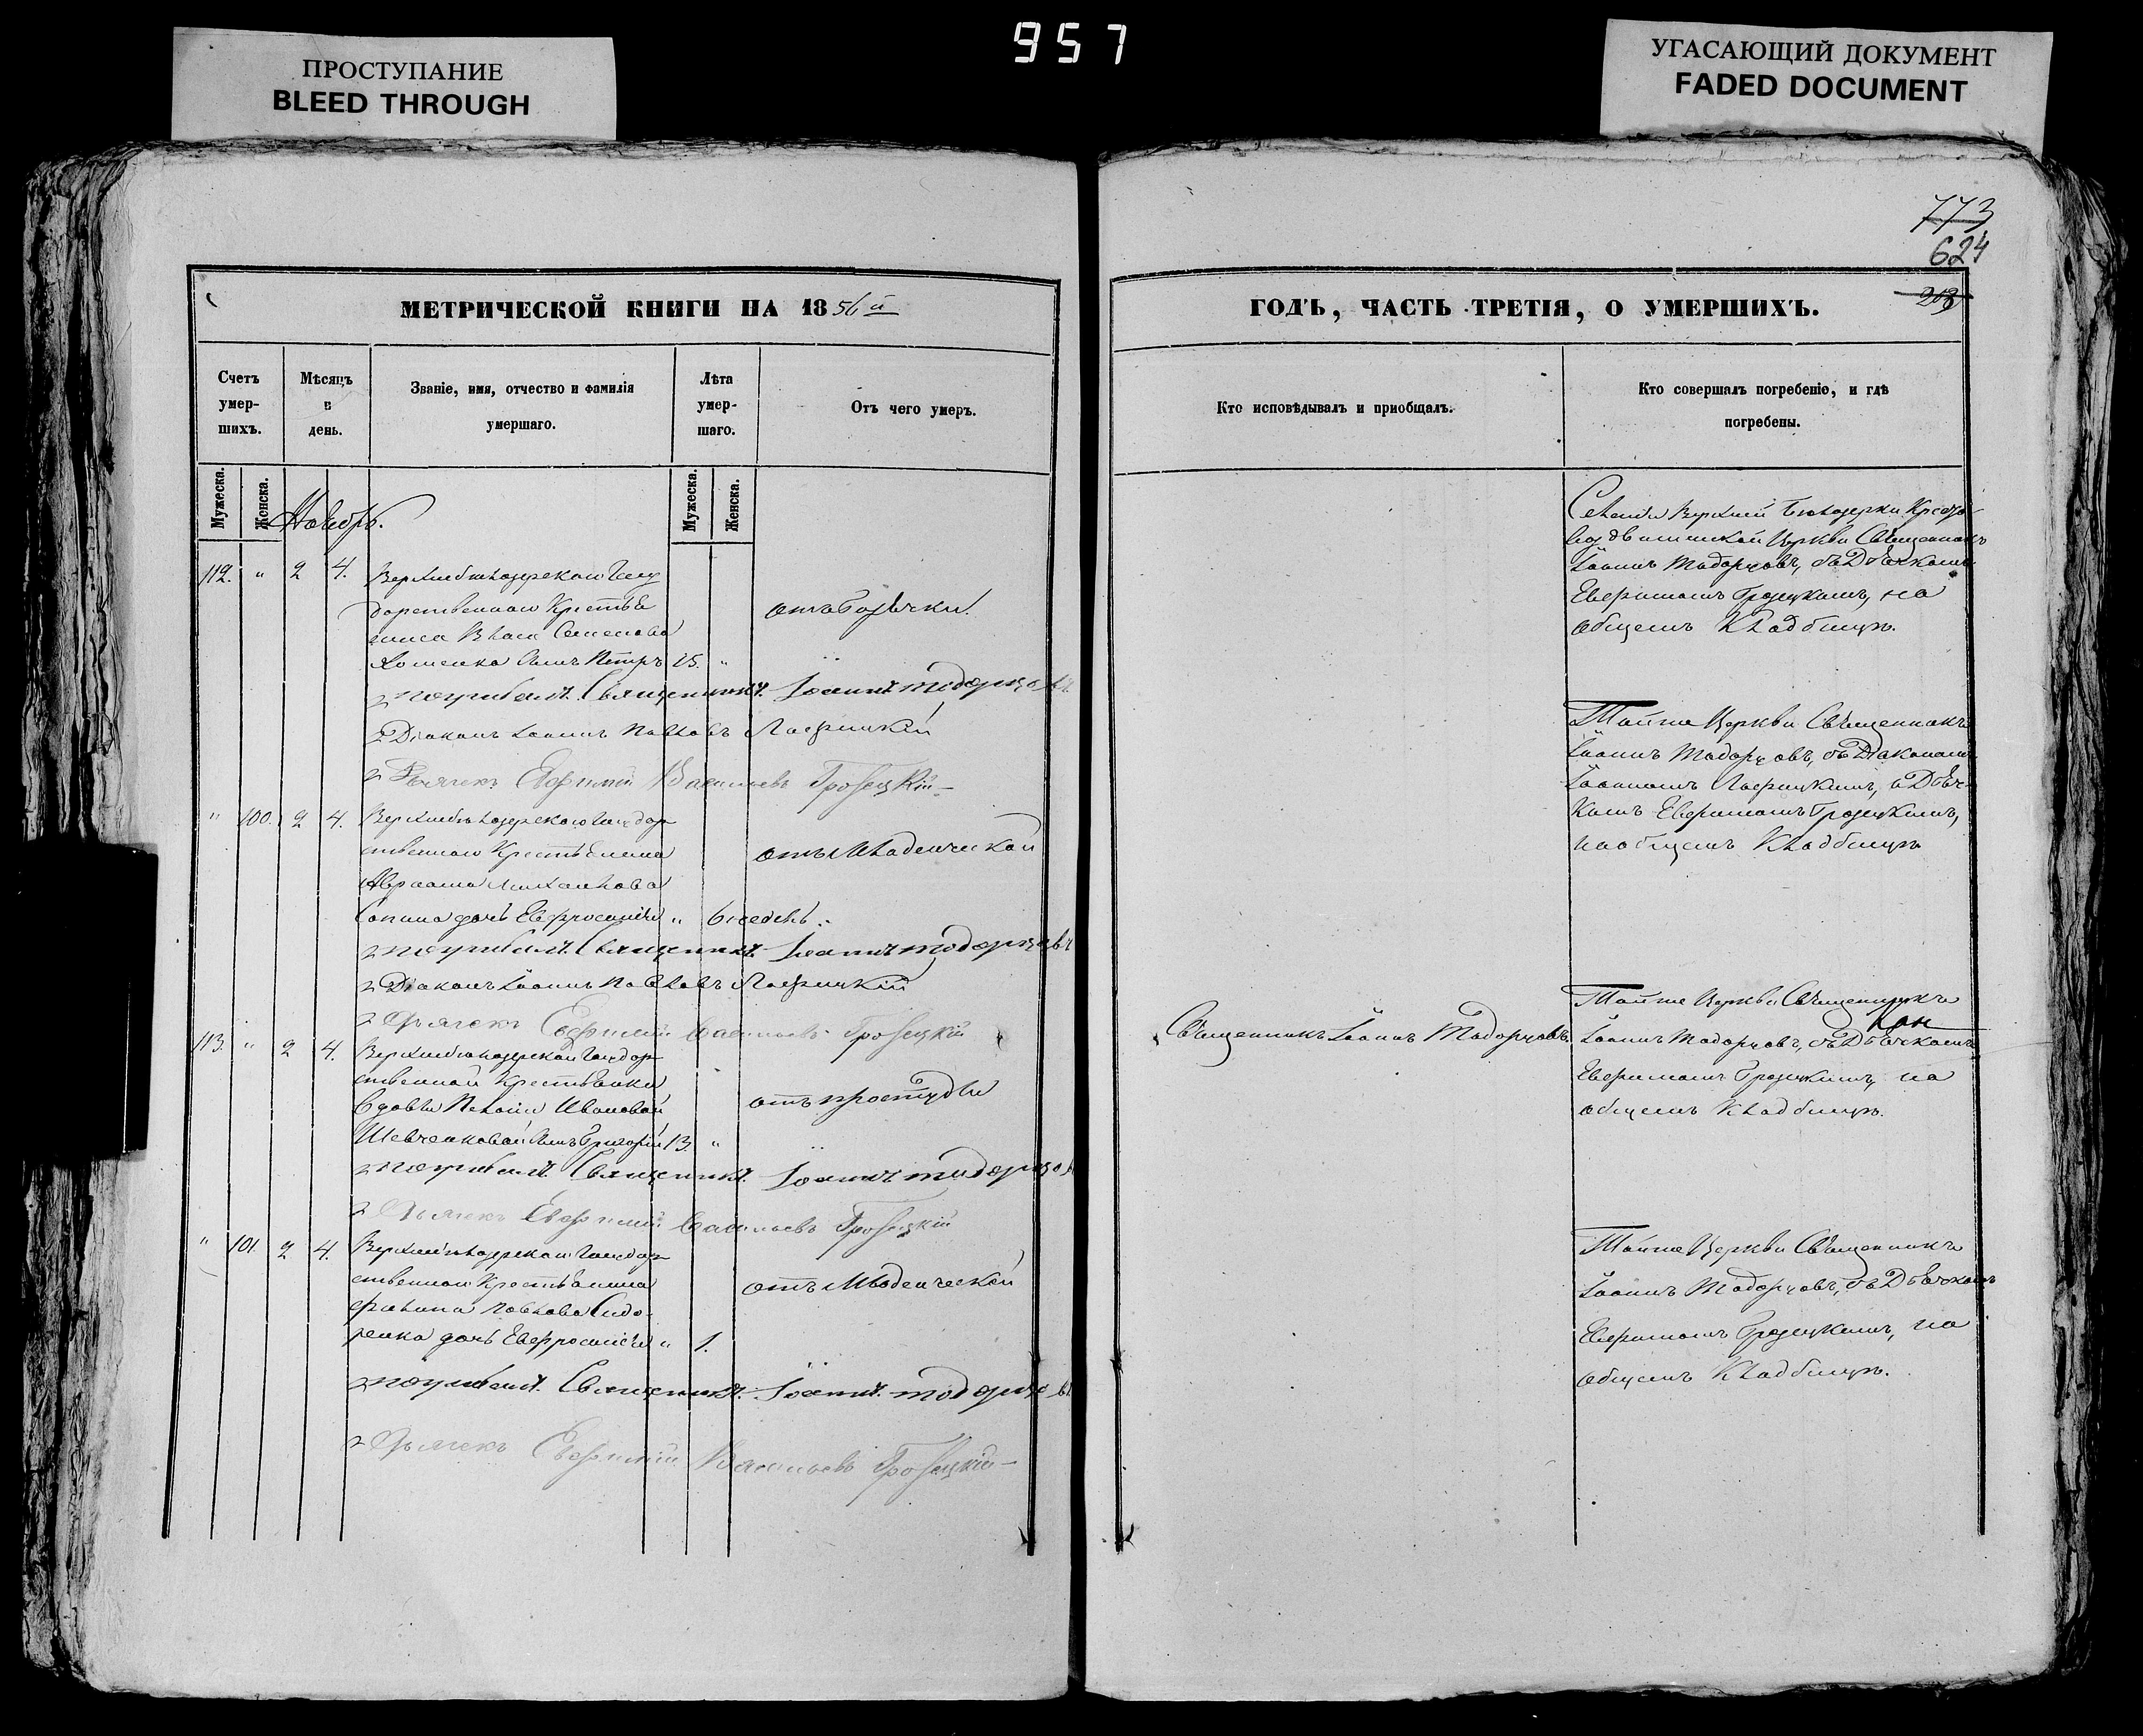 957
ПРОСТУПАНИЕ
BLEED THROUGH
УГАСАЮЩИЙ ДОКУМЕНТ
FADED DOCUMENT
773
624
МЕТРИЧЕСКОЙ КНИГИ НА 1856й
Счетъ умер-шихъ.
Мѣсяцъ и день.
Званіе, имя, отчество и фамилія умершаго.
Лѣта умер-шаго.
Отъ чего умеръ.
Мужеска.
Женска.
Мужеска.
Женска.
Ноябрь.
112. " 2 4.
дарственнаго Крестья
нина Власа Семенова
Хоменка сынъ Петръ 25. "
отъ Горячки.
погребалъ Священникъ Іоаннъ Тодорцовъ
Діаконъ Іоаннъ Павловъ
Дьячекъ Евфимій Васильевъ Грозецкій
" 100. 2 4.
ственнаго Крестьянина
дочь Евфросинія " 6 недѣль.
отъ Младенческой
погребалъ Священникъ Іоаннъ Тодорцовъ
Діаконъ Іоаннъ Павловъ
Дьячекъ Евфимій Васильевъ Грозецкій
113. " 2 4.
ственной Крестьянки
Вдовы Пелагіи Ивановой
Шевченковой сынъ Григорій 13. "
отъ простуды
погребалъ Священникъ Іоаннъ Тодорцовъ
Дьячекъ Евфимій Васильевъ Грозецкій
" 101. 2 4.
ственнаго Крестьянина
Филипа Павлова Сидо-
ренка дочь Евфросинія " 1.
отъ Младенческой
погребалъ Священникъ Іоаннъ Тодорцовъ
Дьячекъ Евфимій Васильевъ Грозецкій
ГОДЪ, ЧАСТЬ ТРЕТІЯ, О УМЕРШИХЪ.
Кто исповѣдывалъ и приобщалъ.
Кто совершалъ погребеніе, и гдѣ погребены.
Церкви Священникъ
Іоаннъ Тодорцовъ, съ Дьячкомъ
Евфимомъ Грозецкимъ, на
общемъ Кладбищѣ.
Тойже Церкви Священникъ
Іоаннъ Тодорцовъ, съ Діакономъ
Іоанномъ и Дьяч-
комъ Евфимомъ Грозецкимъ,
на общемъ Кладбищѣ
Священникъ Іоаннъ Тодорцовъ.
Тойже Церкви Священникъ
Іоаннъ Тодорцовъ, съ Дьячкомъ
Евфимомъ Грозецкимъ, на
общемъ Кладбищѣ.
Тойже Церкви Священникъ
Іоаннъ Тодорцовъ, съ Дьячкомъ
Евфимомъ Грозецкимъ, на
общемъ Кладбищѣ.